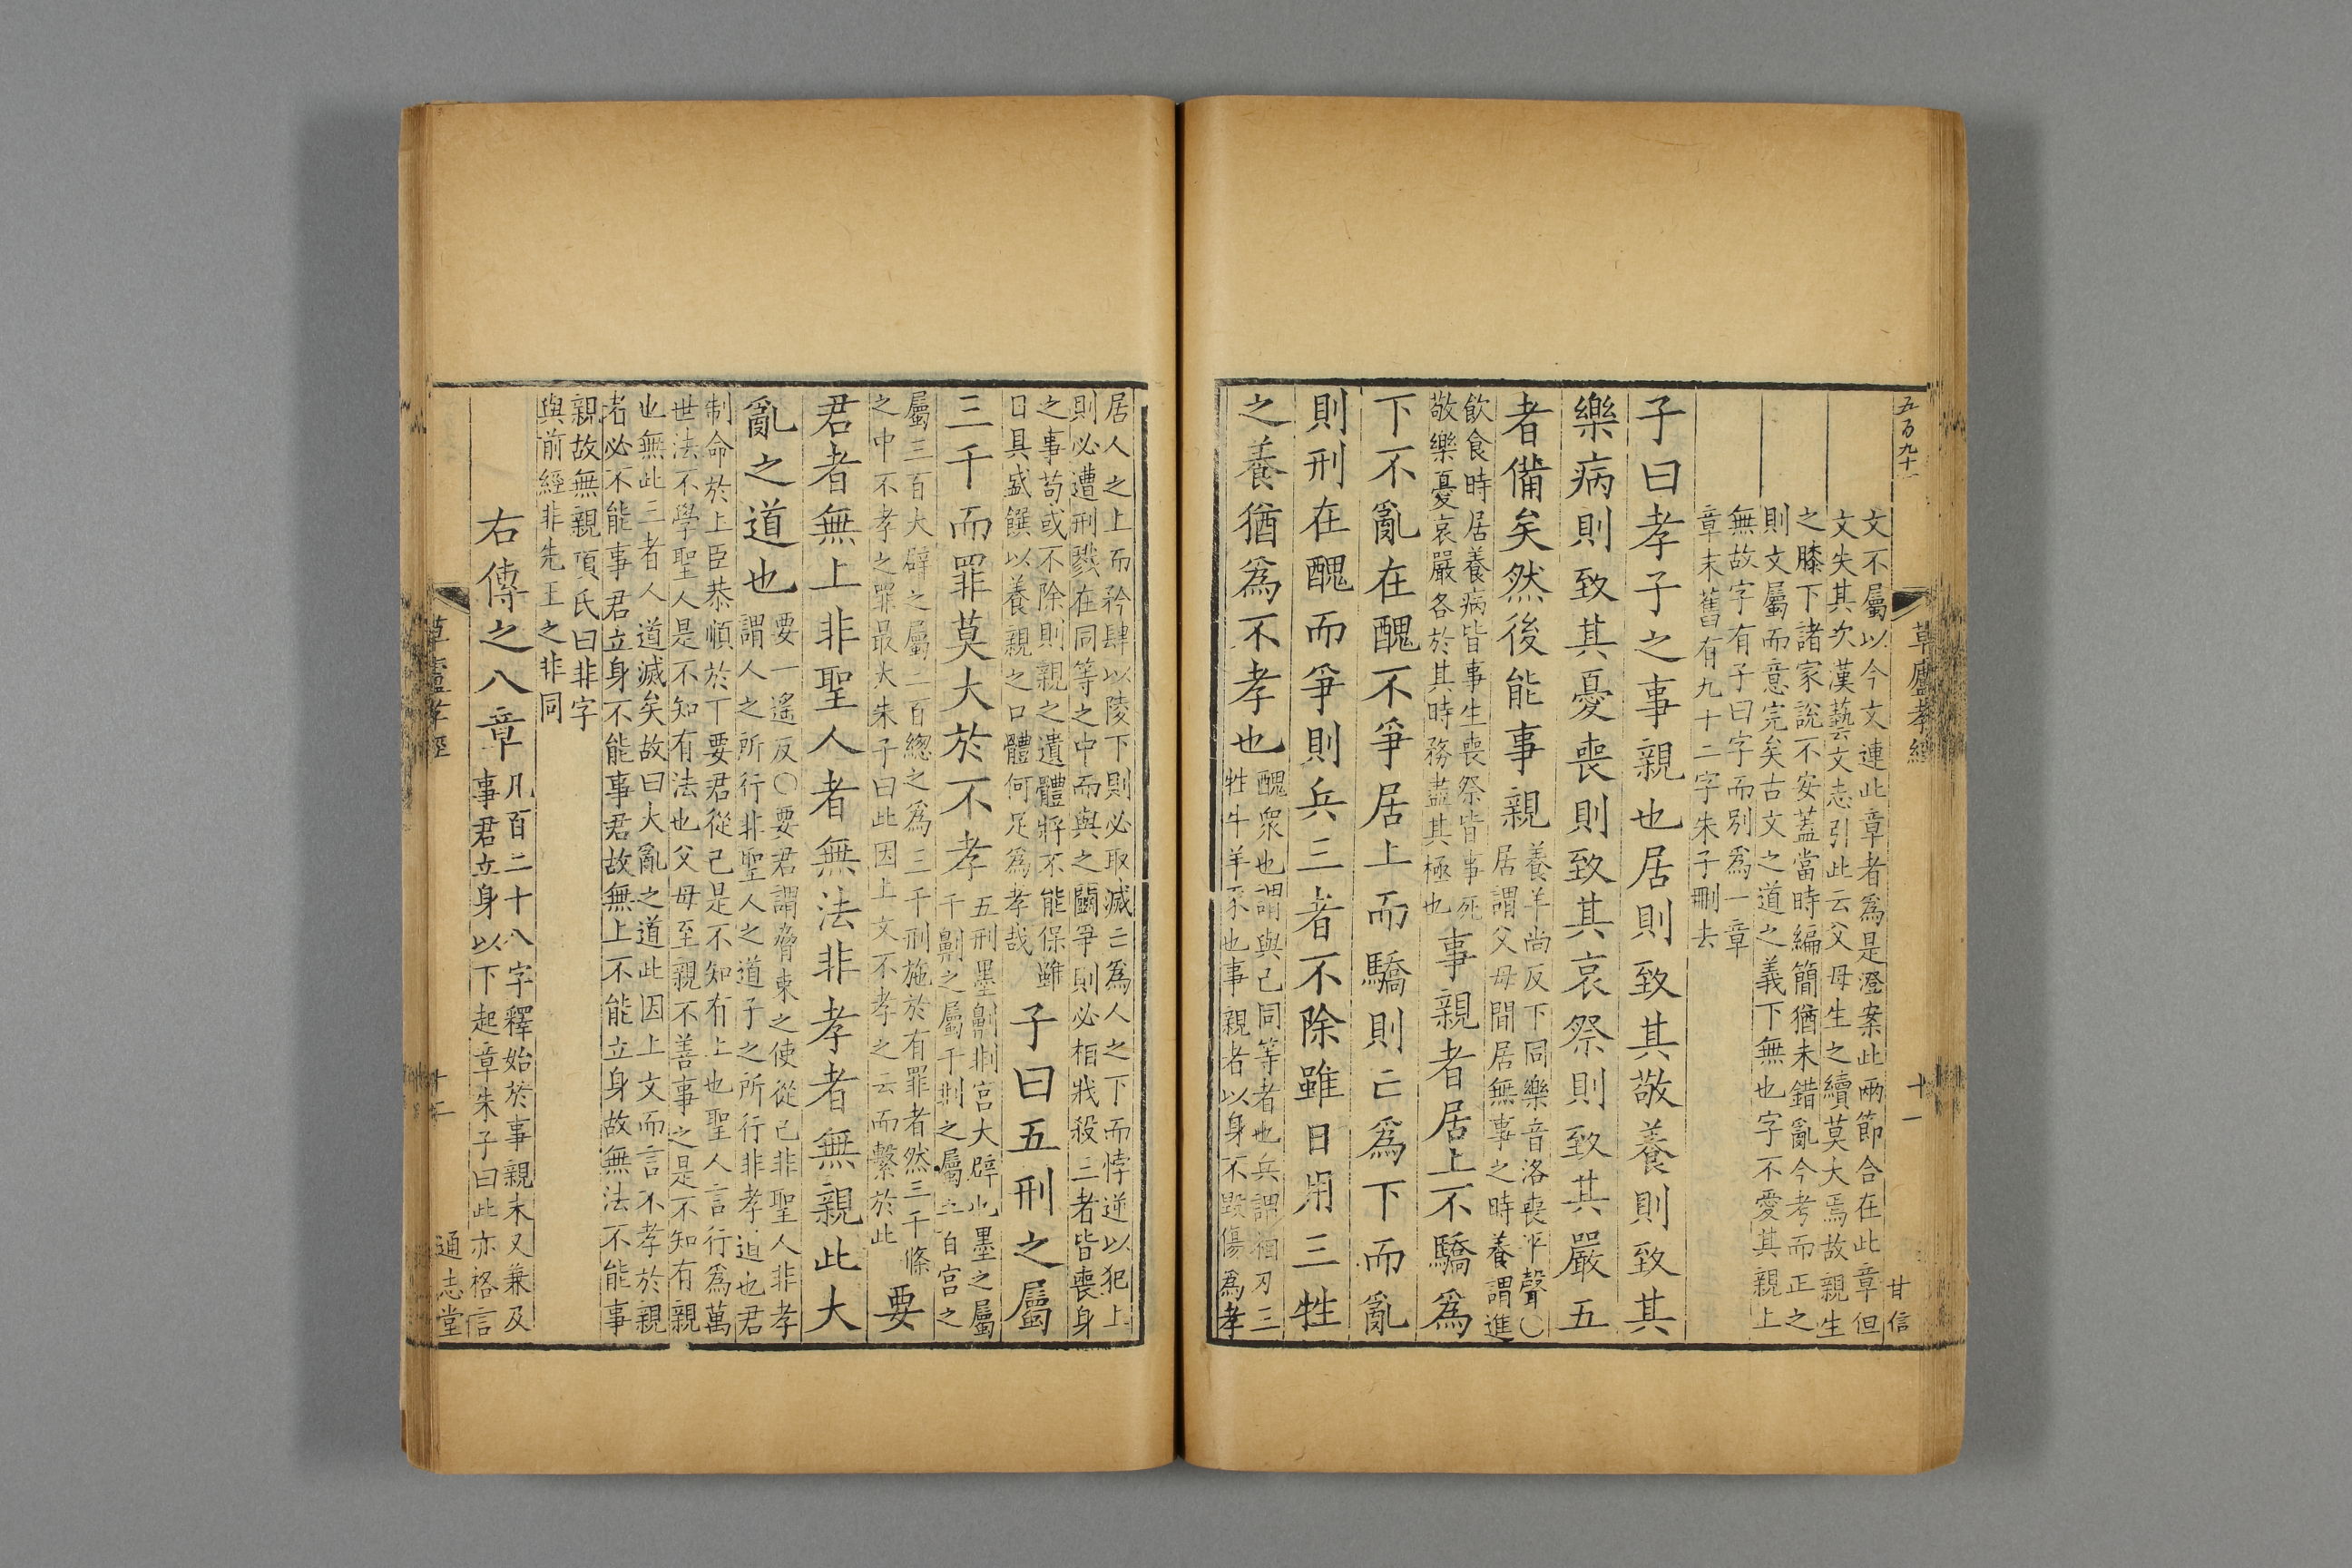 五百九十一
草廬孝經
十一
甘信
文不屬以今文連此章者為是澄案此兩節合在此章但
文失其次漢藝文志引此云父母生之續莫大焉故親生
之膝下諸家說不安蓋當時編簡猶未錯亂今考而正之
則文屬而意完矣古文之道之義下無也字不愛其親上
無故字有子曰字而別為一章
章末舊有九十二字朱子刪去
子曰孝子之事親也居則致其敬養則致其
樂病則致其憂喪則致其哀祭則致其嚴五
者備矣然後能事親
養羊尚反下同樂音洛喪平聲○
居謂父母間居無事之時養謂進
飲食時居養病皆事生喪祭皆事死
敬樂憂哀嚴各於其時務盡其極也
事親者居上不驕為
下不亂在醜不爭居上而驕則亡為下而亂
則刑在醜而爭則兵三者不除雖日用三牲
之養猶為不孝也
醜眾也謂與己同等者也兵謂相刃三
牲牛羊豕也事親者以身不毀傷為孝
居人之上而矜肆以陵下則必取滅亡為人之下而悖逆以犯上
則必遭刑戮在同等之中而與之鬬爭則必相戕殺三者皆喪身
之事苟或不除則親之遺體將不能保雖
日具盛饌以養親之口體何足為孝哉
子曰五刑之屬
三千而罪莫大於不孝
五刑墨劓剕宮大辟也墨之屬
千劓之屬千剕之屬五百宮之
屬三百大辟之屬二百總之為三千刑施於有罪者然三千條
之中不孝之罪最大朱子曰此因上文不孝之云而繫於此
要
君者無上非聖人者無法非孝者無親此大
亂之道也
要一遙反○要君謂脅束之使從己非聖人非孝
謂人之所行非聖人之道子之所行非孝道也君
制命於上臣恭順於下要君從己是不知有上也聖人言行為萬
世法不學聖人是不知有法也父母至親不善事之是不知有親
也無此三者人道滅矣故曰大亂之道此因上文而言不孝於親
者必不能事君立身不能事君故無上不能立身故無法不能事
親故無親項氏曰非字
與前經非先王之非同
右傳之八章
凡百二十八字釋始於事親末又兼及
事君立身以下起章朱子曰此亦格言
草廬孝經
十二
通志堂